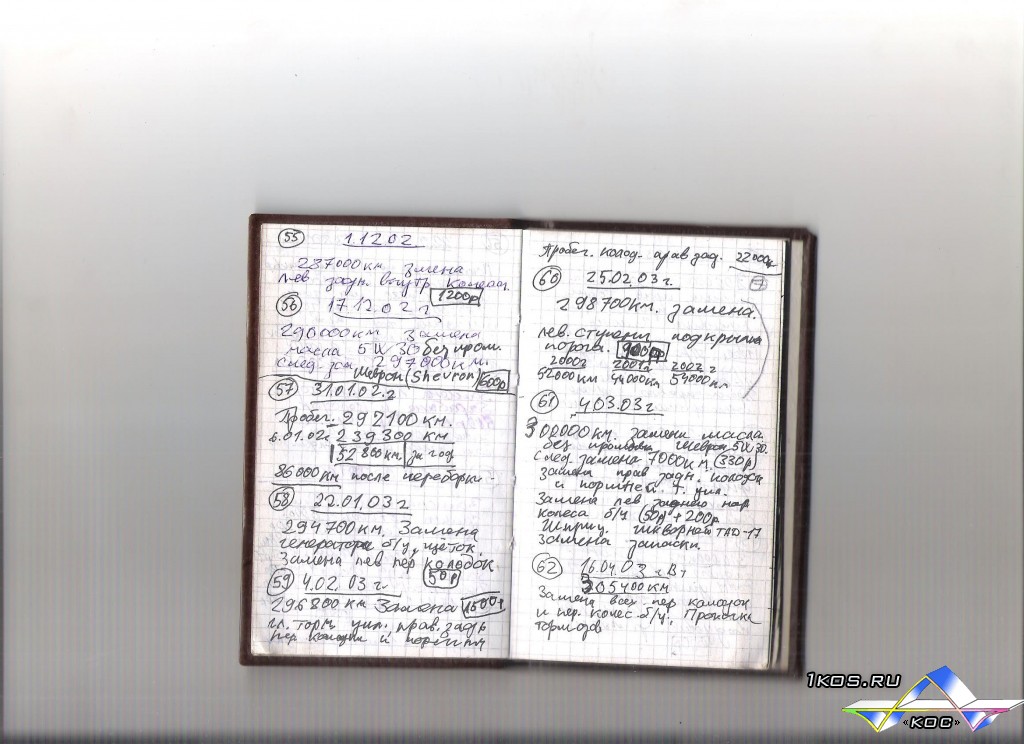 55 1.12.02
287000 км замена
лев задн. внутр колеса.
1200р
56 17.12.02 г
290000 км замена
масла 5W30 без пром.
след. зам 297000 км.
Шеврон (Shevron) 600р
57 31.01.02.г
Пробег. 292100 км.
239300 км
52800 км за год
86000 км после переборки
58 22.01.03 г
294700 км. Замена
генератора б/у, щёток.
Замена лев пер колодок
50р
59 4.02.03 г.
296800 км Замена 1500р
гл. торм цил. прав. задн
пер колодки и
Пробег. колод. прав зад. 22000к
60 25.02.03г.
298700 км. замена.
лев. ступени под крыло
порога. 900р
2000г 2001г 2002г
92000 км 44000км 54000км
61 4.03.03 г
300000км. замена масла.
без промывки шеврон 5W30.
След. замена 7000км. (330р)
Замена прав задн. колодок
и поршней. т. цил.
Замена лев заднего нар
колеса б/у (50р + 200р
Шприц. шкворней ТАД-17
Замена запаски.
62 16.04.03 г Вт
305400 км
Замена всех пер колодок
и пер. колес. б/у. Прокачка
тормозов
1KOS.RU
«КОС»